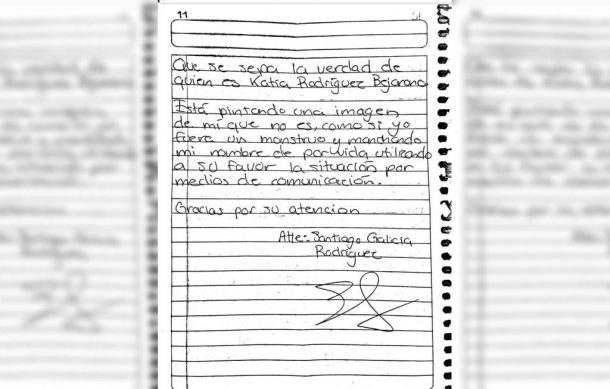 11
Que se sepa la verdad de
quien es Katia Rodríguez Bejarano
Está pintando una imagen
de mi que no es, como si yo
fuera un monstruo y manchando
mi nombre de por vida utilizando
a su favor la situación por
medios de comunicación.
Gracias por su atención
Atte: Santiago Galicia
Rodríguez